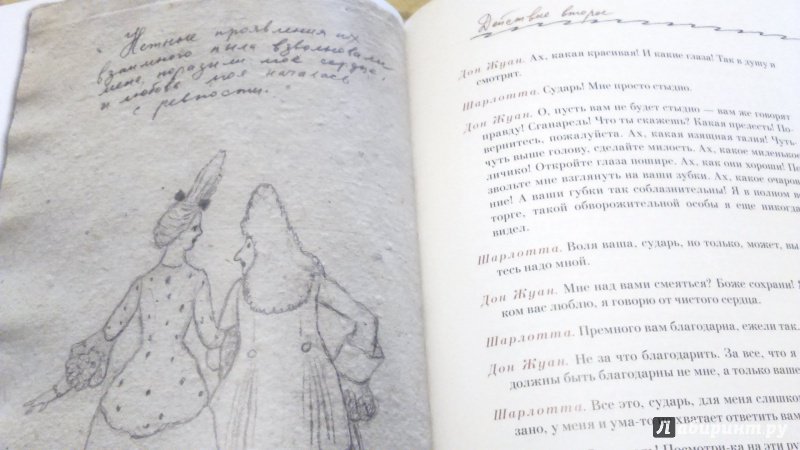 " Нежные проявления их
взаимного пыла взволновали
меня, поразили мое сердце,
и любовь моя началась
с ревности. "
Действие второе
Дон Жуан. Ах, какая красивая! И какие глаза! Так в душу и
смотрят.
Шарлотта. Сударь! Мне просто стыдно.
Дон Жуан. О, пусть вам не будет стыдно — вам же говорят
правду! Сганарель! Что ты скажешь? Какая прелесть! По-
вернитесь, пожалуйста. Ах, какая изящная талия! Чуть-
чуть выше голову, сделайте милость. Ах, какое миленькое
личико! Откройте глаза пошире. Ах, как они хороши! По
звольте мне взглянуть на ваши зубки. Ах, какое очаров
ние! А ваши губки так соблазнительны! Я в полном во
торге, такой обворожительной особы я еще никогда
видел.
Шарлотта. Воля ваша, сударь, но только, может, вы
тесь надо мной.
Дон Жуан. Мне над вами смеяться? Боже сохрани! Я
ком вас люблю, я говорю от чистого сердца.
Шарлотта. Премного вам благодарна, ежели так.
Дон Жуан. Не за что благодарить. За все, что я
должны быть благодарны не мне, а только ваше
Шарлотта. Все это, сударь, для меня слишком
зано, у меня и ума-то хватает ответить вам
Посмотри-ка на эти ру
Лабиринт.ру